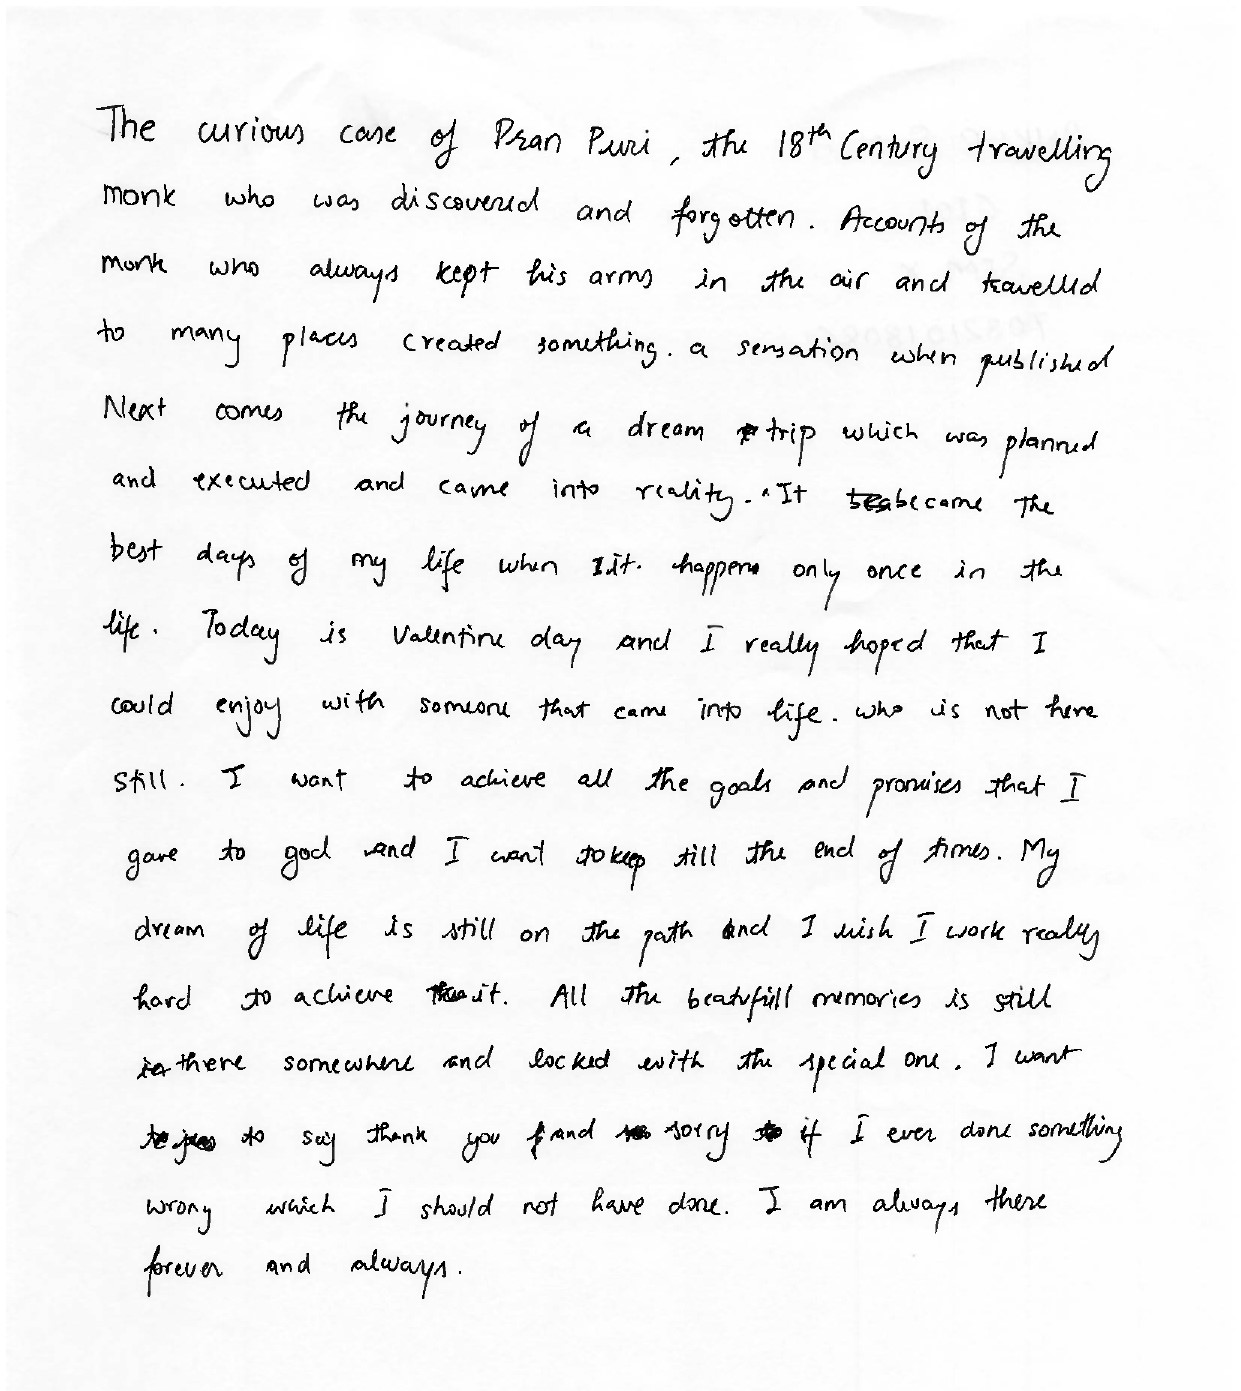 The curious case of Pran Puri, the 18th Century travelling
monk who was discovered and forgotten. Accounts of the
monk who always kept his arms in the air and travelled
to many places created something. a sensation when published
Next comes the journey of a dream trip which was planned
and executed and came into reality. It became the
best days of my life when it. happens only once in the
life. Today is Valentine day and I really hoped that I
could enjoy with someone that came into life. who is not here
still. I want to achieve all the goals and promises that I
gave to god and I want to keep till the end of times. My
dream of life is still on the path and I wish I work really
hard to achieve it. All the beatufull memories is still
there somewhere and locked with the special one. I want
to say thank you and sorry if I ever done something
wrong which I should not have done. I am always there
forever and always.